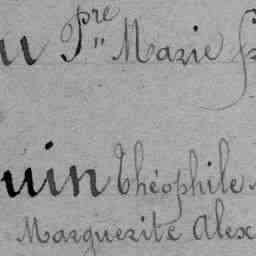 u Pre Marie
uin Théophile
Marguerite Alex